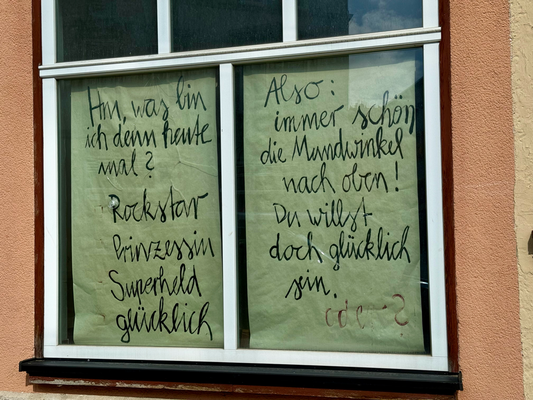 Hm, was bin
ich denn heute
mal?
Rockstar
Prinzessin
Superheld
glücklich
Also:
immer schön
die Mundwinkel
nach oben!
Du willst
doch glücklich
sein.
oder?